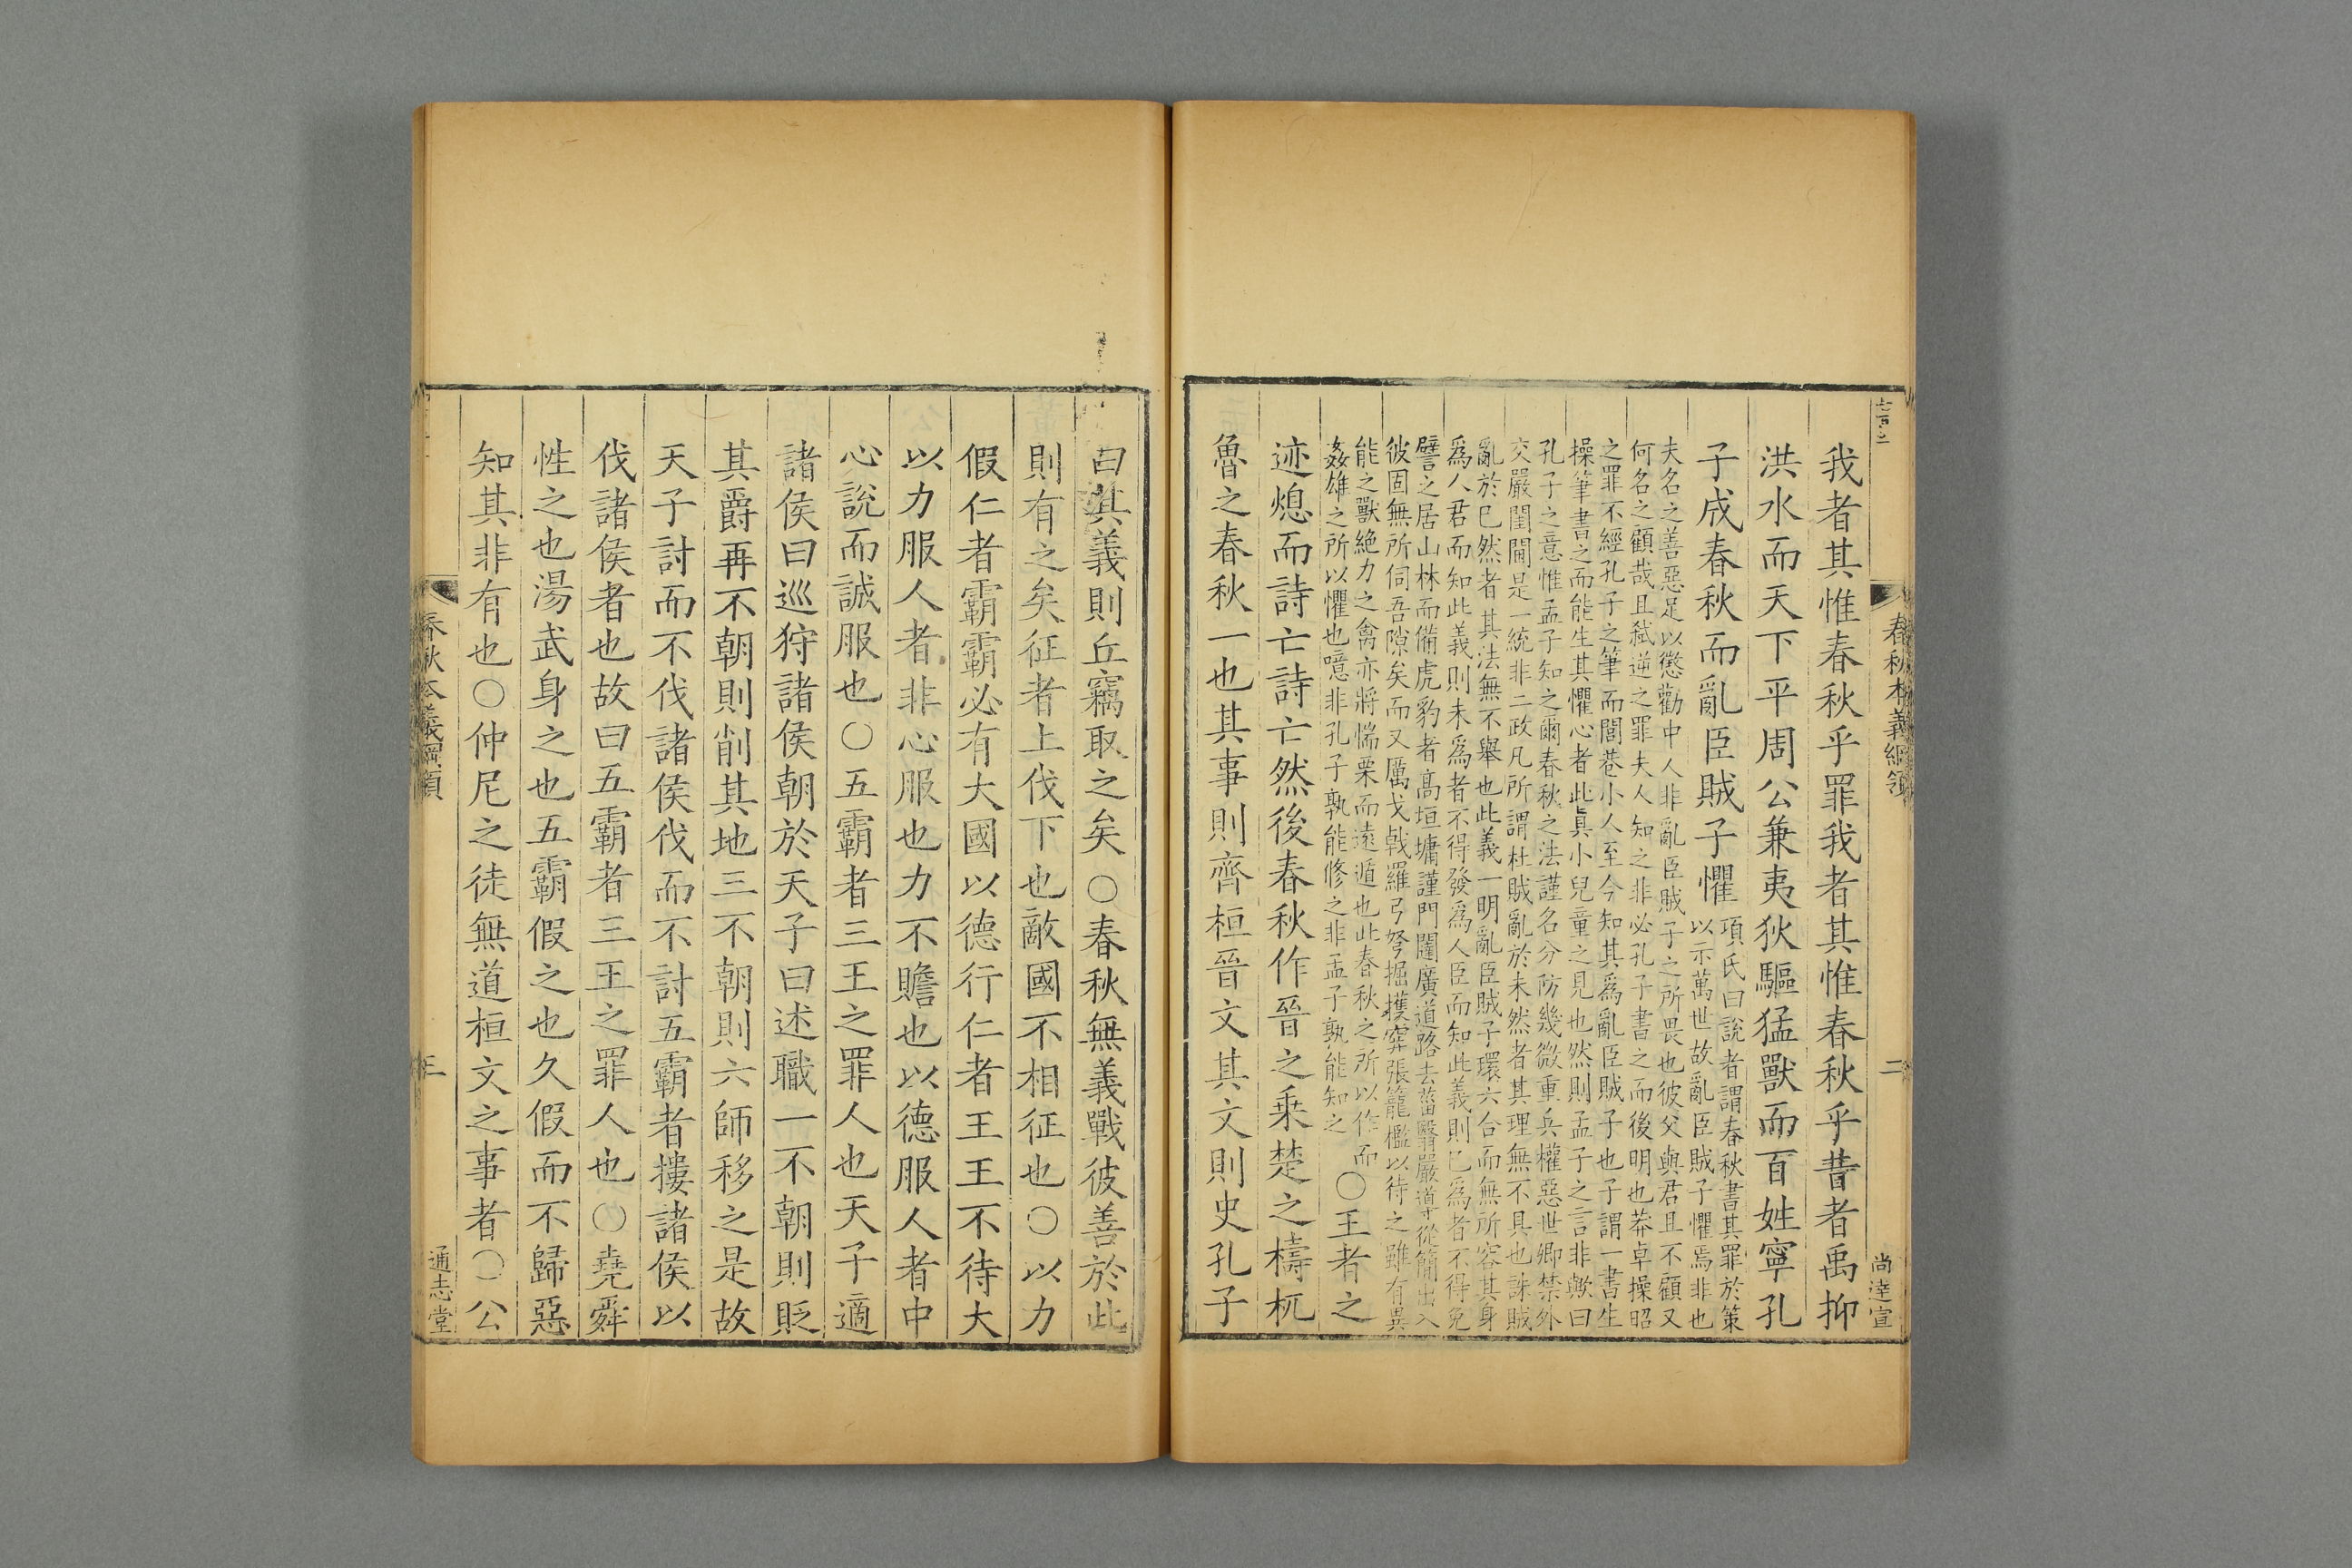 春秋本義綱領
二
尚逹宣
我者其惟春秋乎罪我者其惟春秋乎昔者禹抑
洪水而天下平周公兼夷狄驅猛獸而百姓寧孔
子成春秋而亂臣賊子懼
項氏曰說者謂春秋書其罪於策
以示萬世故亂臣賊子懼焉非也
夫名之善惡足以懲勸中人非亂臣賊子之所畏也彼父與君且不顧又
何名之顧哉且弑逆之罪夫人知之非必孔子書之而後明也莽卓操昭
之罪不經孔子之筆而閭巷小人至今知其爲亂臣賊子也子謂一書生
操筆書之而能生其懼心者此真小兒童之見也然則孟子之言非歟曰
孔子之意惟孟子知之爾春秋之法謹名分防幾微重兵權惡世卿禁外
交嚴閨閫是一統非二政凡所謂杜賊亂於未然者其理無不具也誅賊
亂於已然者其法無不舉也此義一明亂臣賊子環六合而無所容其身
爲人君而知此義則未爲者不得發爲人臣而知此義則已爲者不得免
譬之居山林而備虎豹者高垣墉謹門闥廣道路去菑翳嚴導從簡出入
彼固無所伺吾隙矣而又厲戈戟羅弓弩掘擭穽張籠檻以待之雖有異
能之獸絶力之禽亦將惴栗而遠遁也此春秋之所以作而
姦雄之所以懼也噫非孔子孰能修之非孟子孰能知之
〇王者之
迹熄而詩亡詩亡然後春秋作晉之乘楚之檮杌
魯之春秋一也其事則齊桓晉文其文則史孔子
曰其義則丘竊取之矣〇春秋無義戰彼善於此
則有之矣征者上伐下也敵國不相征也〇以力
假仁者霸霸必有大國以德行仁者王王不待大
以力服人者非心服也力不贍也以德服人者中
心說而誠服也〇五霸者三王之罪人也天子適
諸侯曰巡狩諸侯朝於天子曰述職一不朝則貶
其爵再不朝則削其地三不朝則六師移之是故
天子討而不伐諸侯伐而不討五霸者摟諸侯以
伐諸侯者也故曰五霸者三王之罪人也〇堯舜
性之也湯武身之也五霸假之也久假而不歸惡
知其非有也〇仲尼之徒無道桓文之事者〇公
春秋本義綱領
三
通志堂